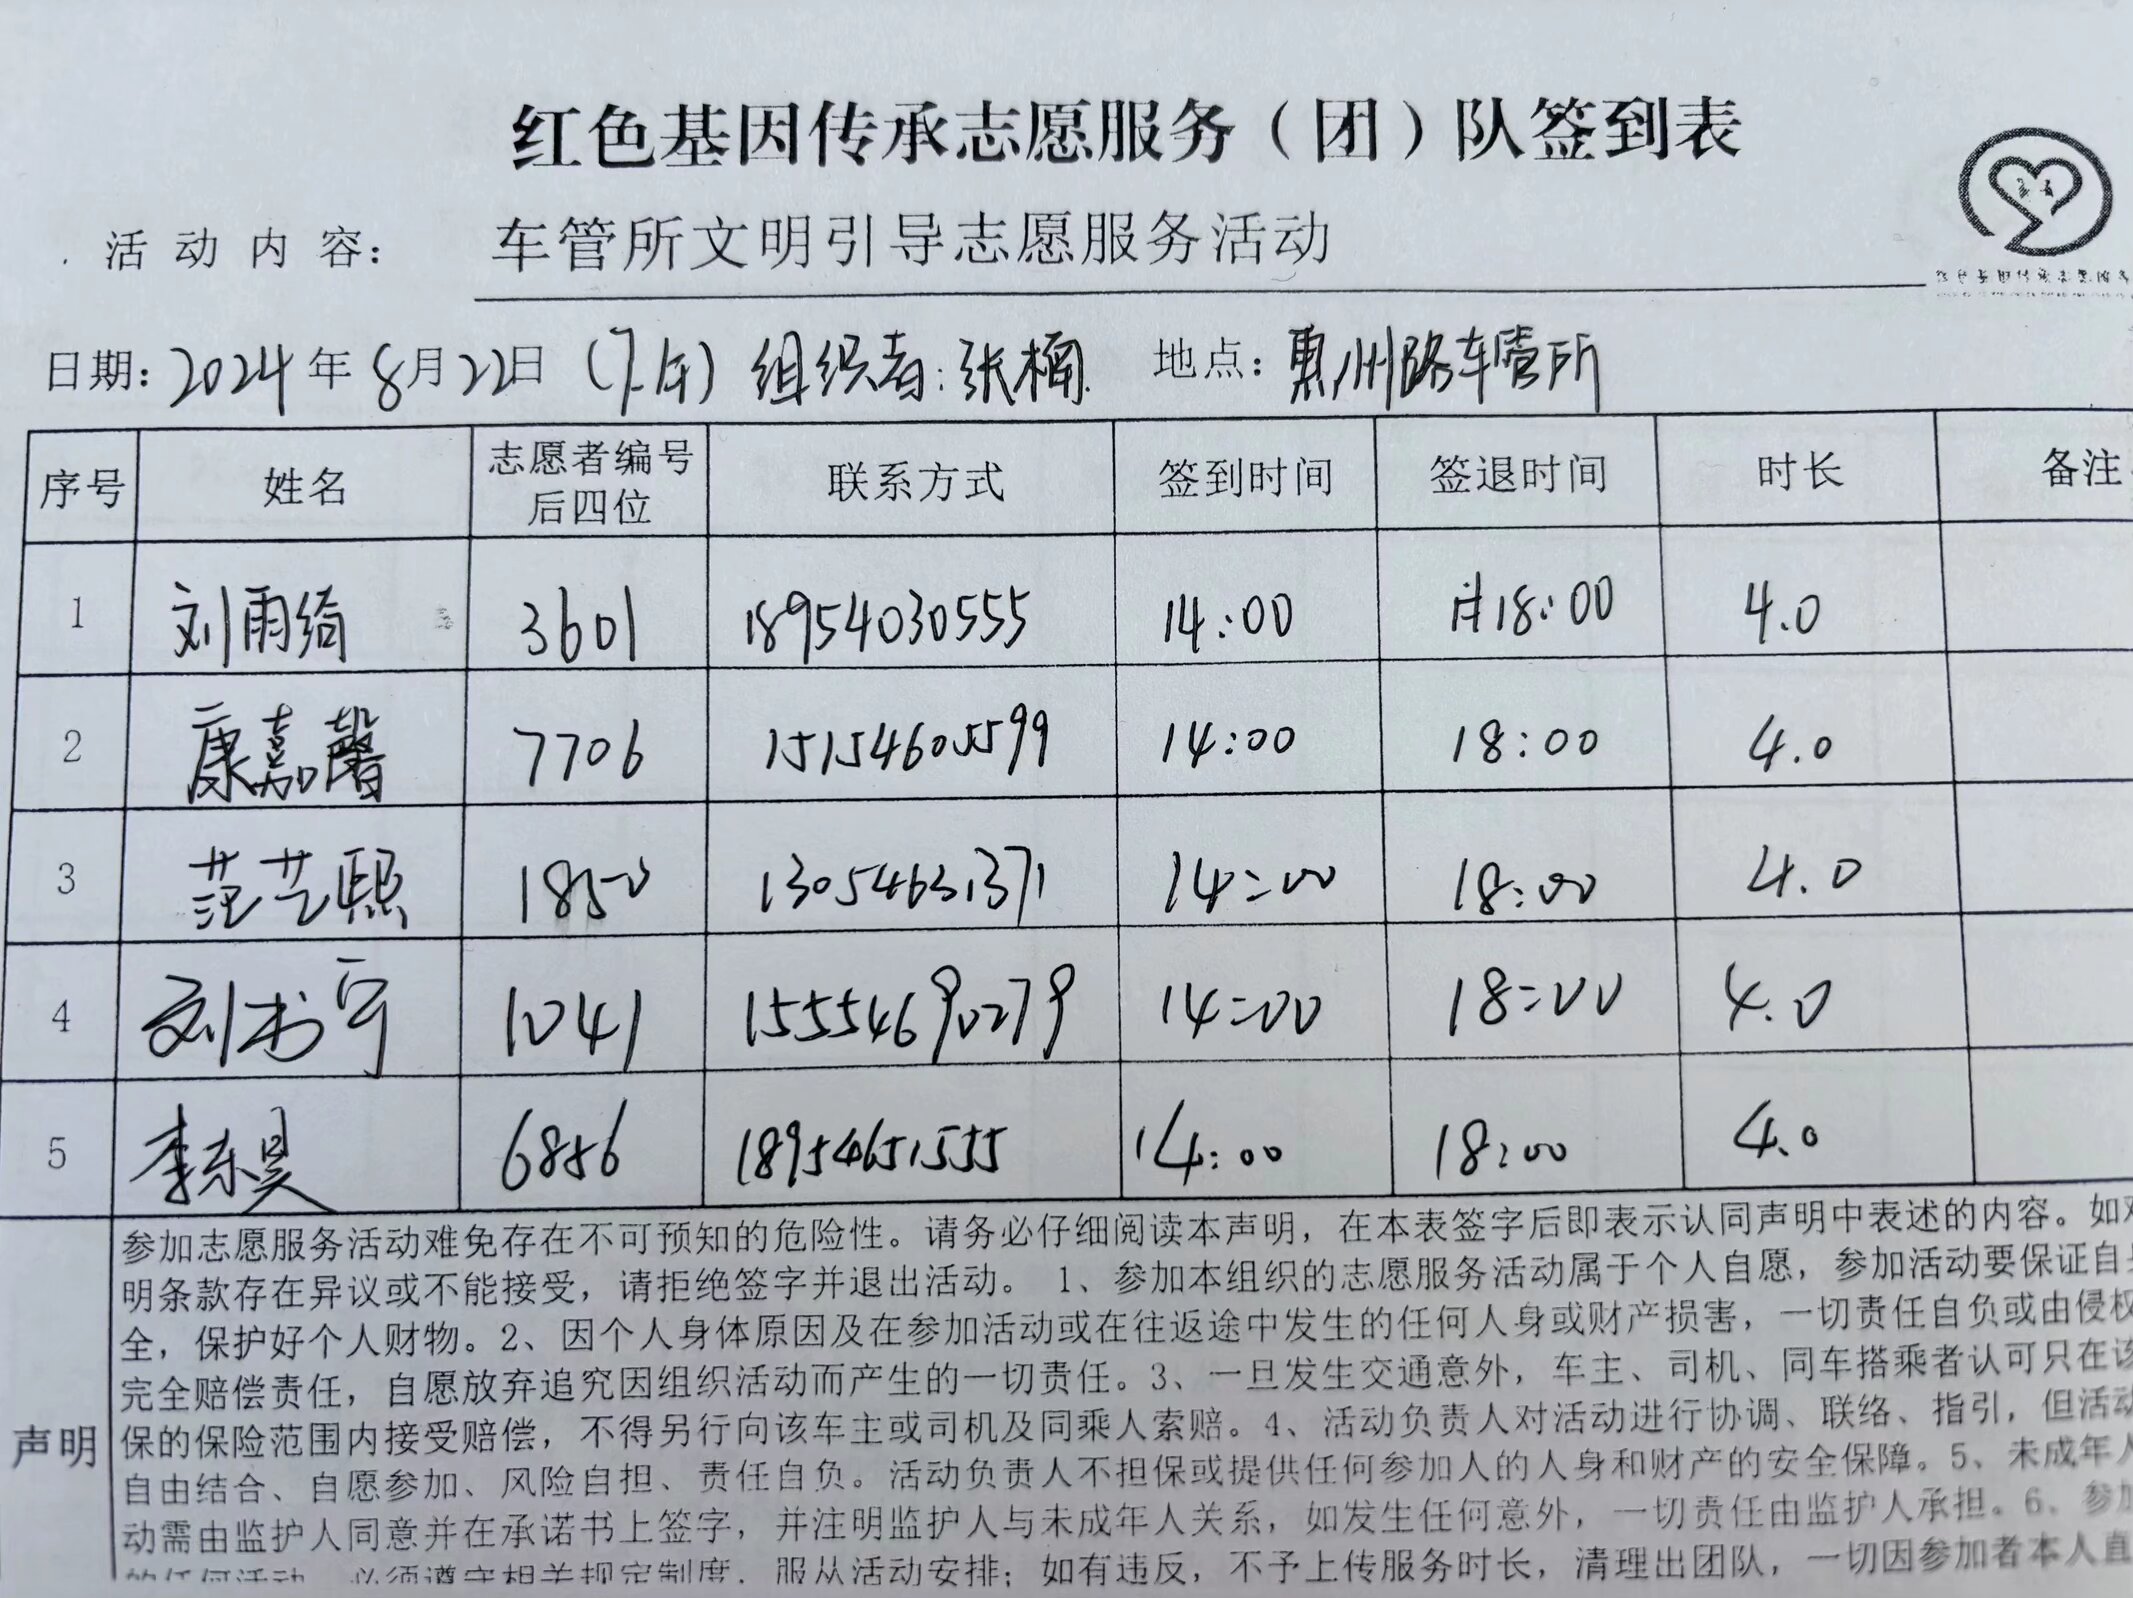 红色基因传承志愿服务（团）队签到表
活动内容： 车管所文明引导志愿服务活动
日期：2024年8月22日（下午）组织者：张楠 地点：惠州路车管所
序号 姓名 志愿者编号后四位 联系方式 签到时间 签退时间 时长 备注
1 刘雨绮 3601 18954030555 14:00 18:00 4.0
2 康嘉馨 7706 15154605599 14:00 18:00 4.0
3 范艺熙 1850 13054631371 14:00 18:00 4.0
4 刘书宁 1041 15554690279 14:00 18:00 4.0
5 李东昊 6856 18954651555 14:00 18:00 4.0
声明
参加志愿服务活动难免存在不可预知的危险性。请务必仔细阅读本声明，在本表签字后即表示认同声明中表述的内容。如
明条款存在异议或不能接受，请拒绝签字并退出活动。 1、参加本组织的志愿服务活动属于个人自愿，参加活动要保证自
全，保护好个人财物。2、因个人身体原因及在参加活动或在往返途中发生的任何人身或财产损害，一切责任自负或由侵权
完全赔偿责任，自愿放弃追究因组织活动而产生的一切责任。3、一旦发生交通意外，车主、司机、同车搭乘者认可只在该
保的保险范围内接受赔偿，不得另行向该车主或司机及同乘人索赔。4、活动负责人对活动进行协调、联络、指引，但活动
自由结合、自愿参加、风险自担、责任自负。活动负责人不担保或提供任何参加人的人身和财产的安全保障。5、未成年人
动需由监护人同意并在承诺书上签字，并注明监护人与未成年人关系，如发生任何意外，一切责任由监护人承担。6、参加
的任何活动，必须遵守相关规定制度，服从活动安排；如有违反，不予上传服务时长，清理出团队，一切因参加者本人直